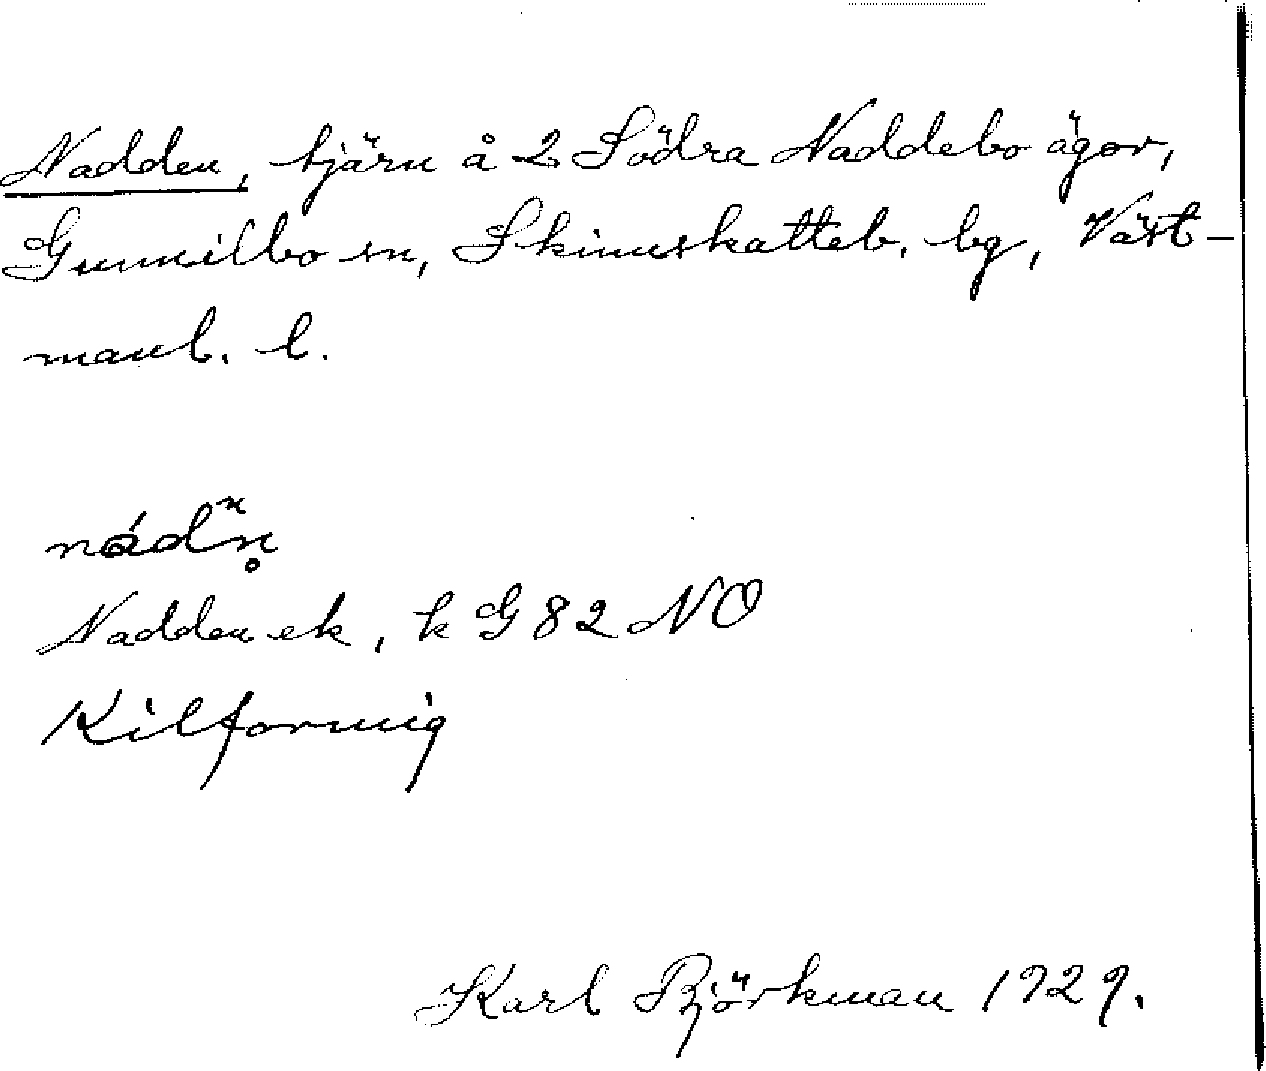 Nadden, tjärn å 2 Södra Naddebo ägor,
Gunnilbo sn, Skinnskatteb. bg, Väst-
manl. l.
nádn̥
Nadden ek, k G 82 NO
Kilformig
Karl Björkman 1929.